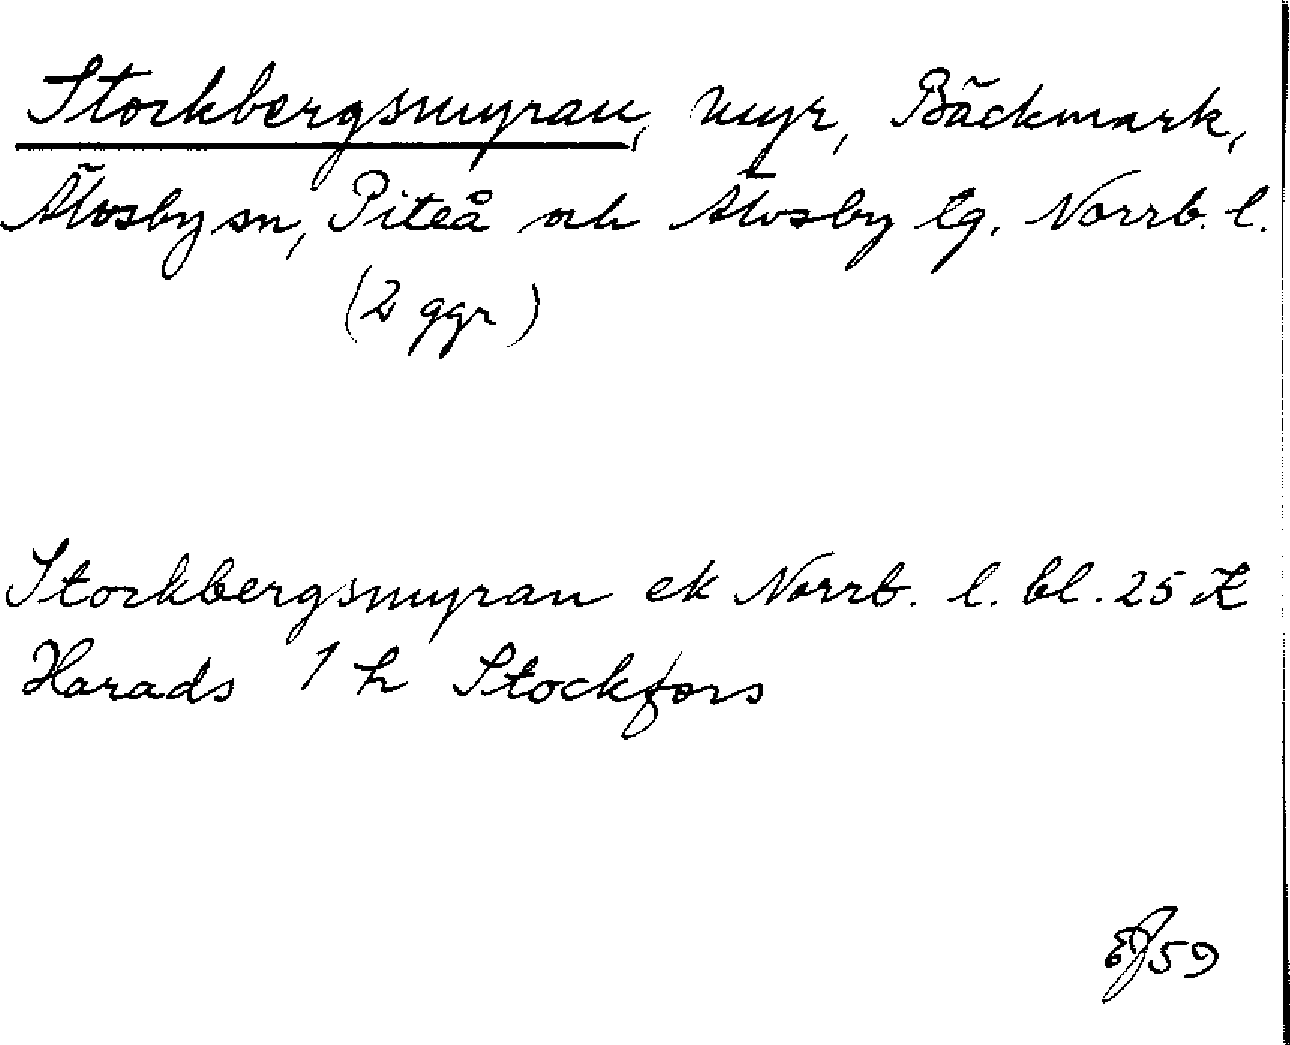 Stockbergsmyran, myr, Bäckmark,
Älvsby sn, Piteå och Älvsby lg. Norrb. l.
(2 ggr)
Stockbergsmyran ek Norrb. l. bl. 25 K
Harads 1 h Stockfors
59